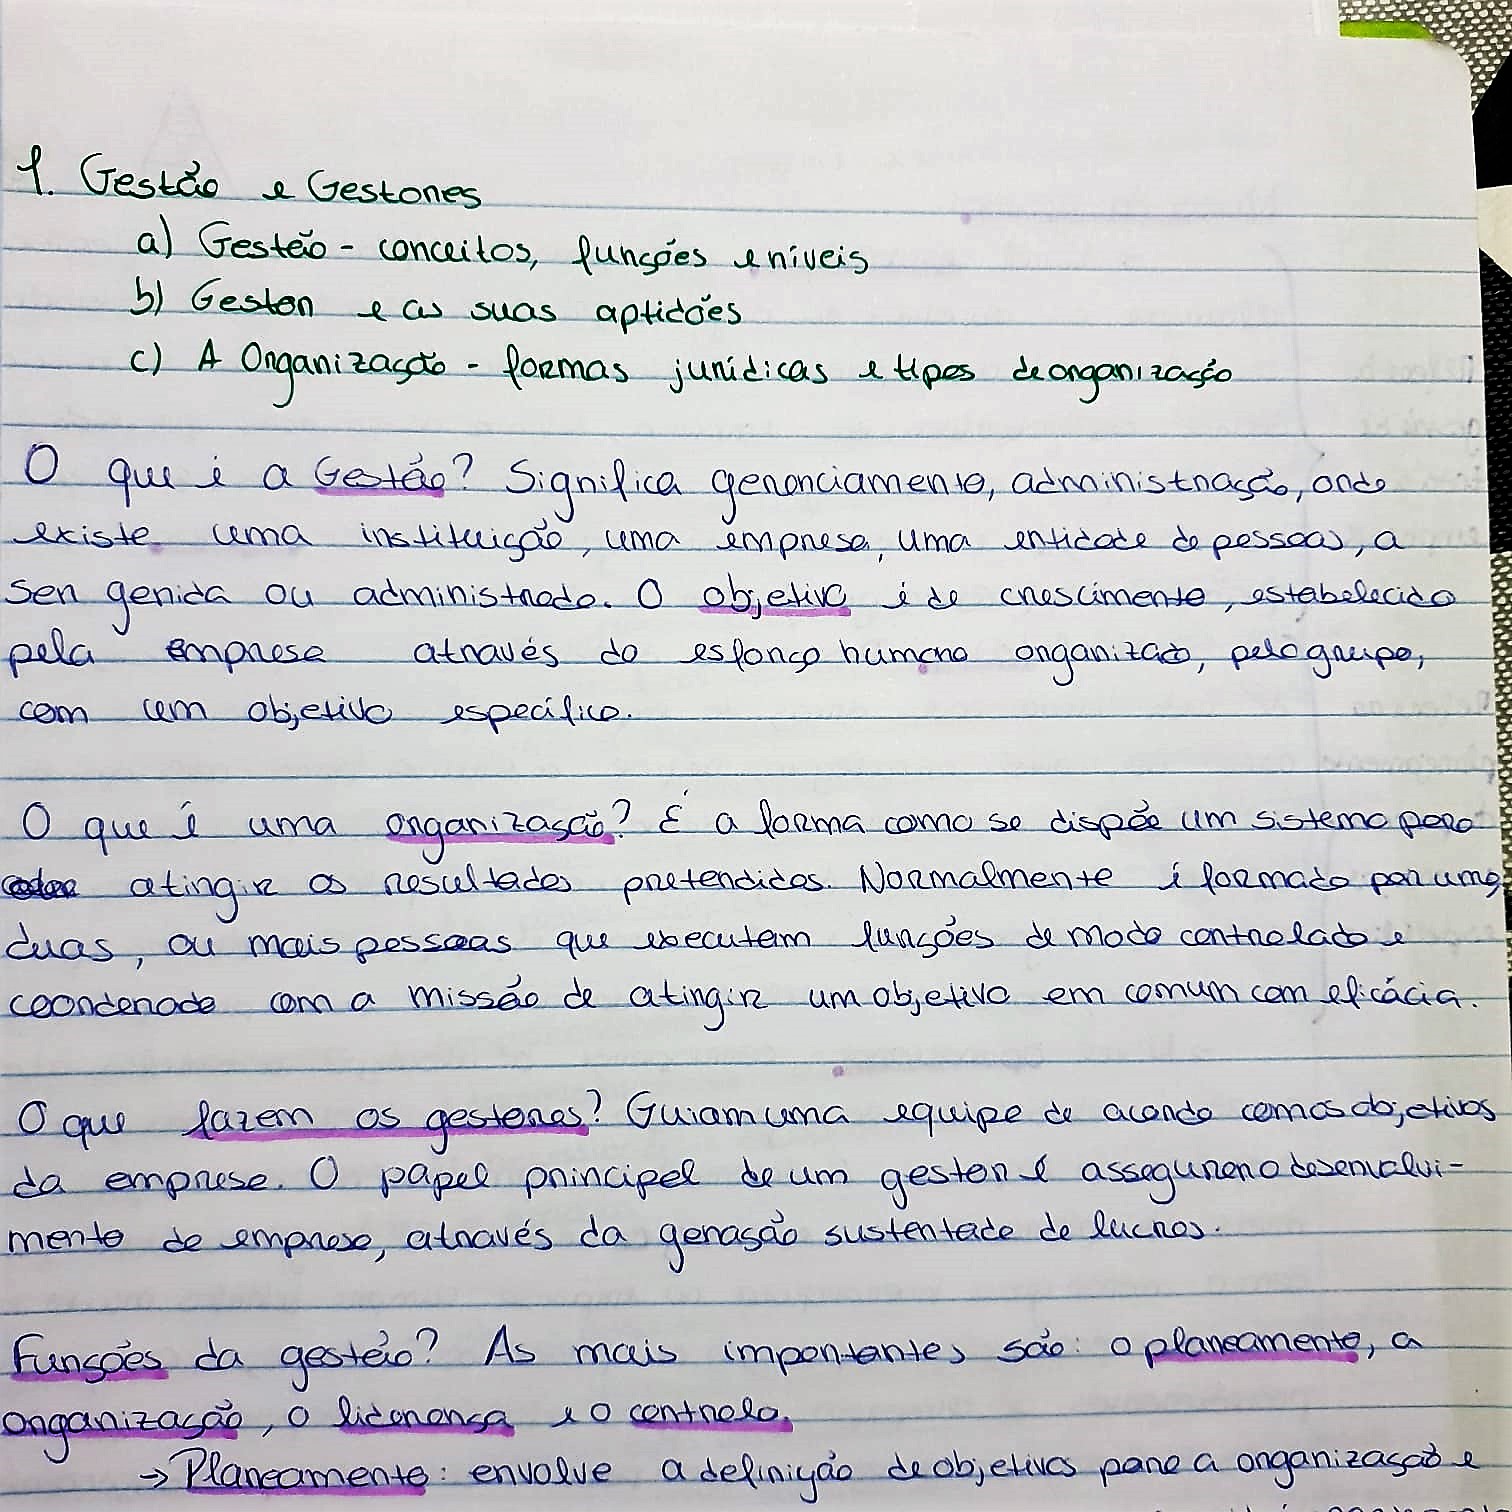 1. Gestão e Gestores
a) Gestão - conceitos, funções e níveis
b) Gestor e as suas aptidões
c) A Organização - formas jurídicas e tipos de organização
O que é a Gestão? Significa gerenciamento, administração, onde
existe uma instituição, uma empresa, uma entidade de pessoas, a
ser gerida ou administrada. O objetivo é de crescimento, estabelecido
pela empresa através do esforço humano organizado, pelo grupo,
com um objetivo específico.
O que é uma organização? É a forma como se dispõe um sistema para
atingir os resultados pretendidos. Normalmente é formado por uma,
duas, ou mais pessoas que executam funções de modo controlado e
coordenado com a missão de atingir um objetivo em comum com eficácia.
O que fazem os gestores? Guiam uma equipe de acordo com os objetivos
da empresa. O papel principal de um gestor é assegurar o desenvolvi-
mento de empresa, através da geração sustentada de lucros.
Funções da gestão? As mais importantes são: o planeamento, a
organização, o liderança e o controlo.
→ Planeamento: envolve a definição de objetivos para a organização e